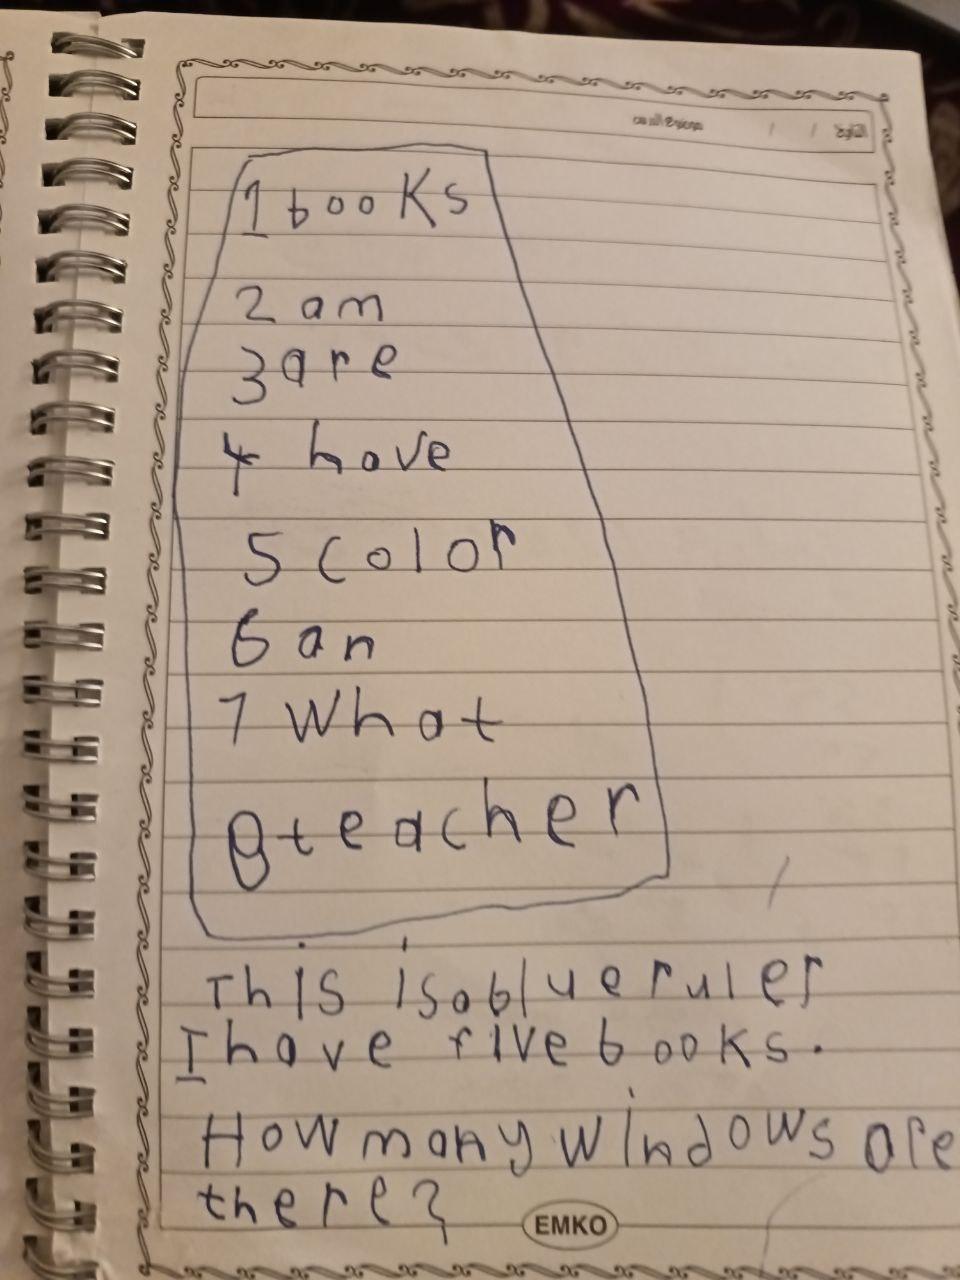 التاريخ / / موضوع الدرس
1 books
2 am
3 are
4 have
5 color
6 an
7 What
8 teacher
This is a blue ruler
I have five books.
How many windows are
there?
EMKO